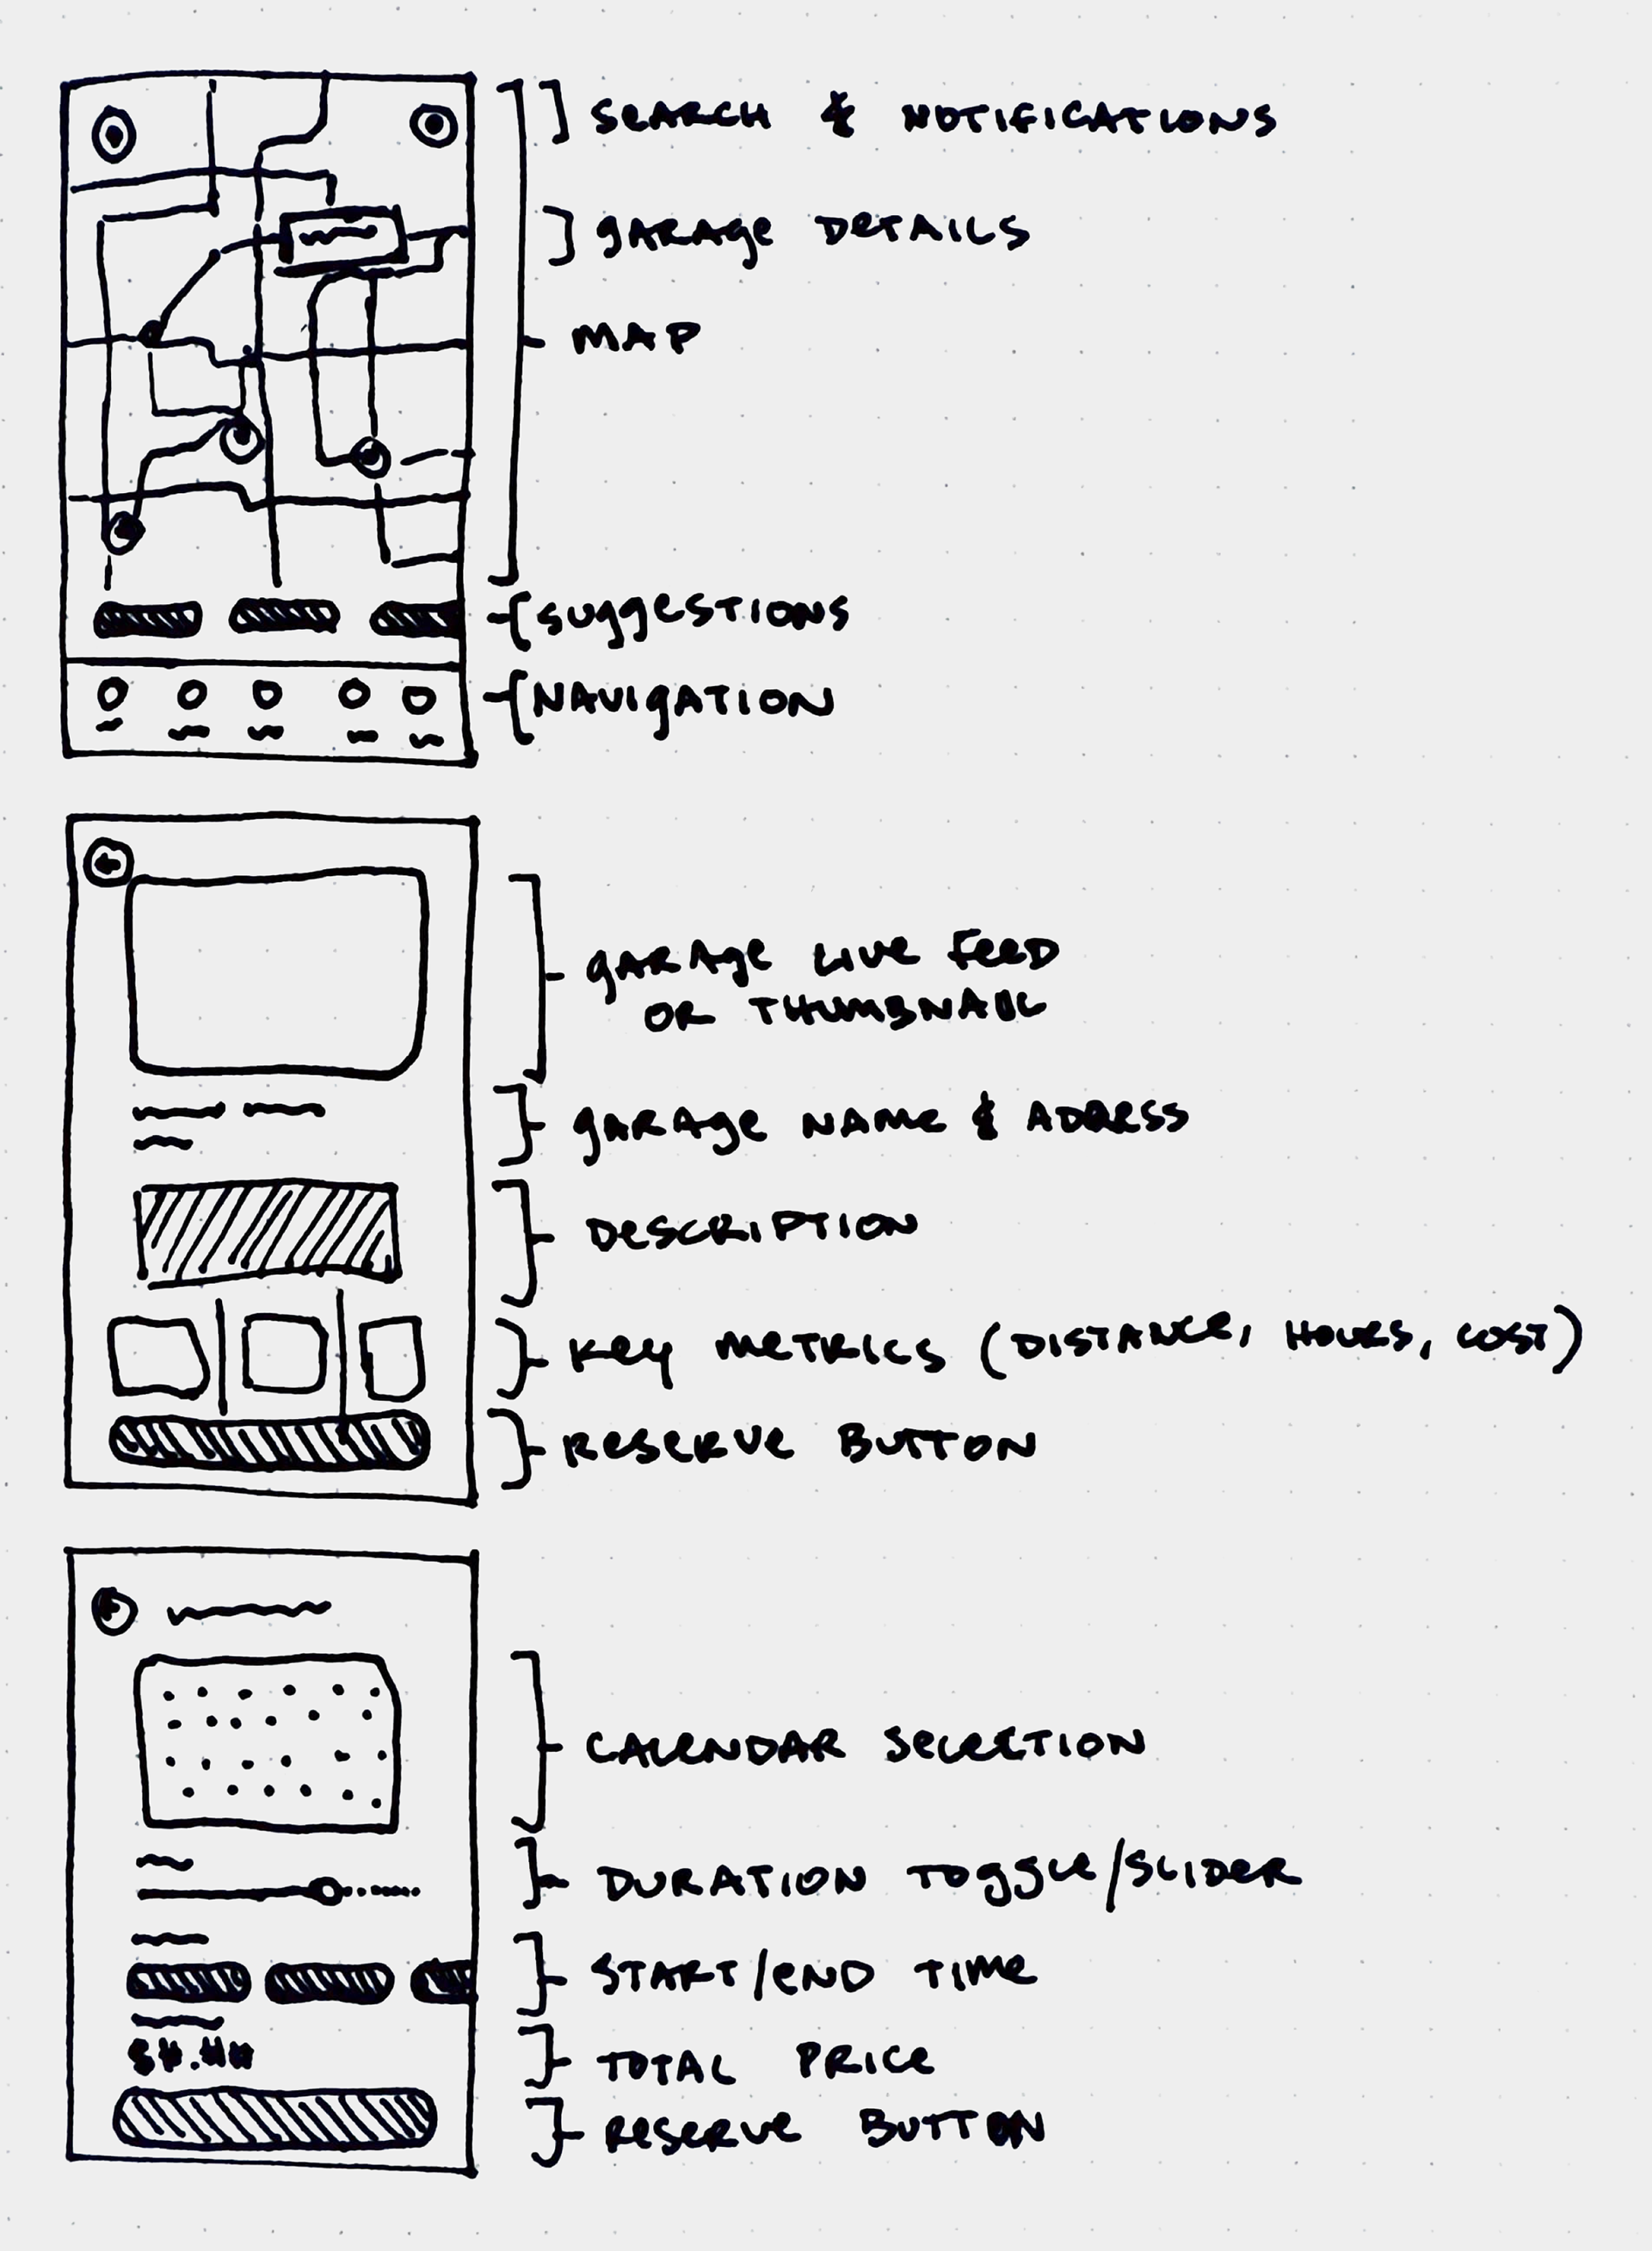 SEARCH & NOTIFICATIONS
GARAGE DETAILS
MAP
SUGGESTIONS
NAVIGATION
GARAGE LIVE FEED
OR THUMBNAIL
GARAGE NAME & ADDRESS
DESCRIPTION
KEY METRICS (DISTANCE, HOURS, COST)
RESERVE BUTTON
CALENDAR SELECTION
DURATION TOGGLE/SLIDER
START/END TIME
$#.##
TOTAL PRICE
RESERVE BUTTON